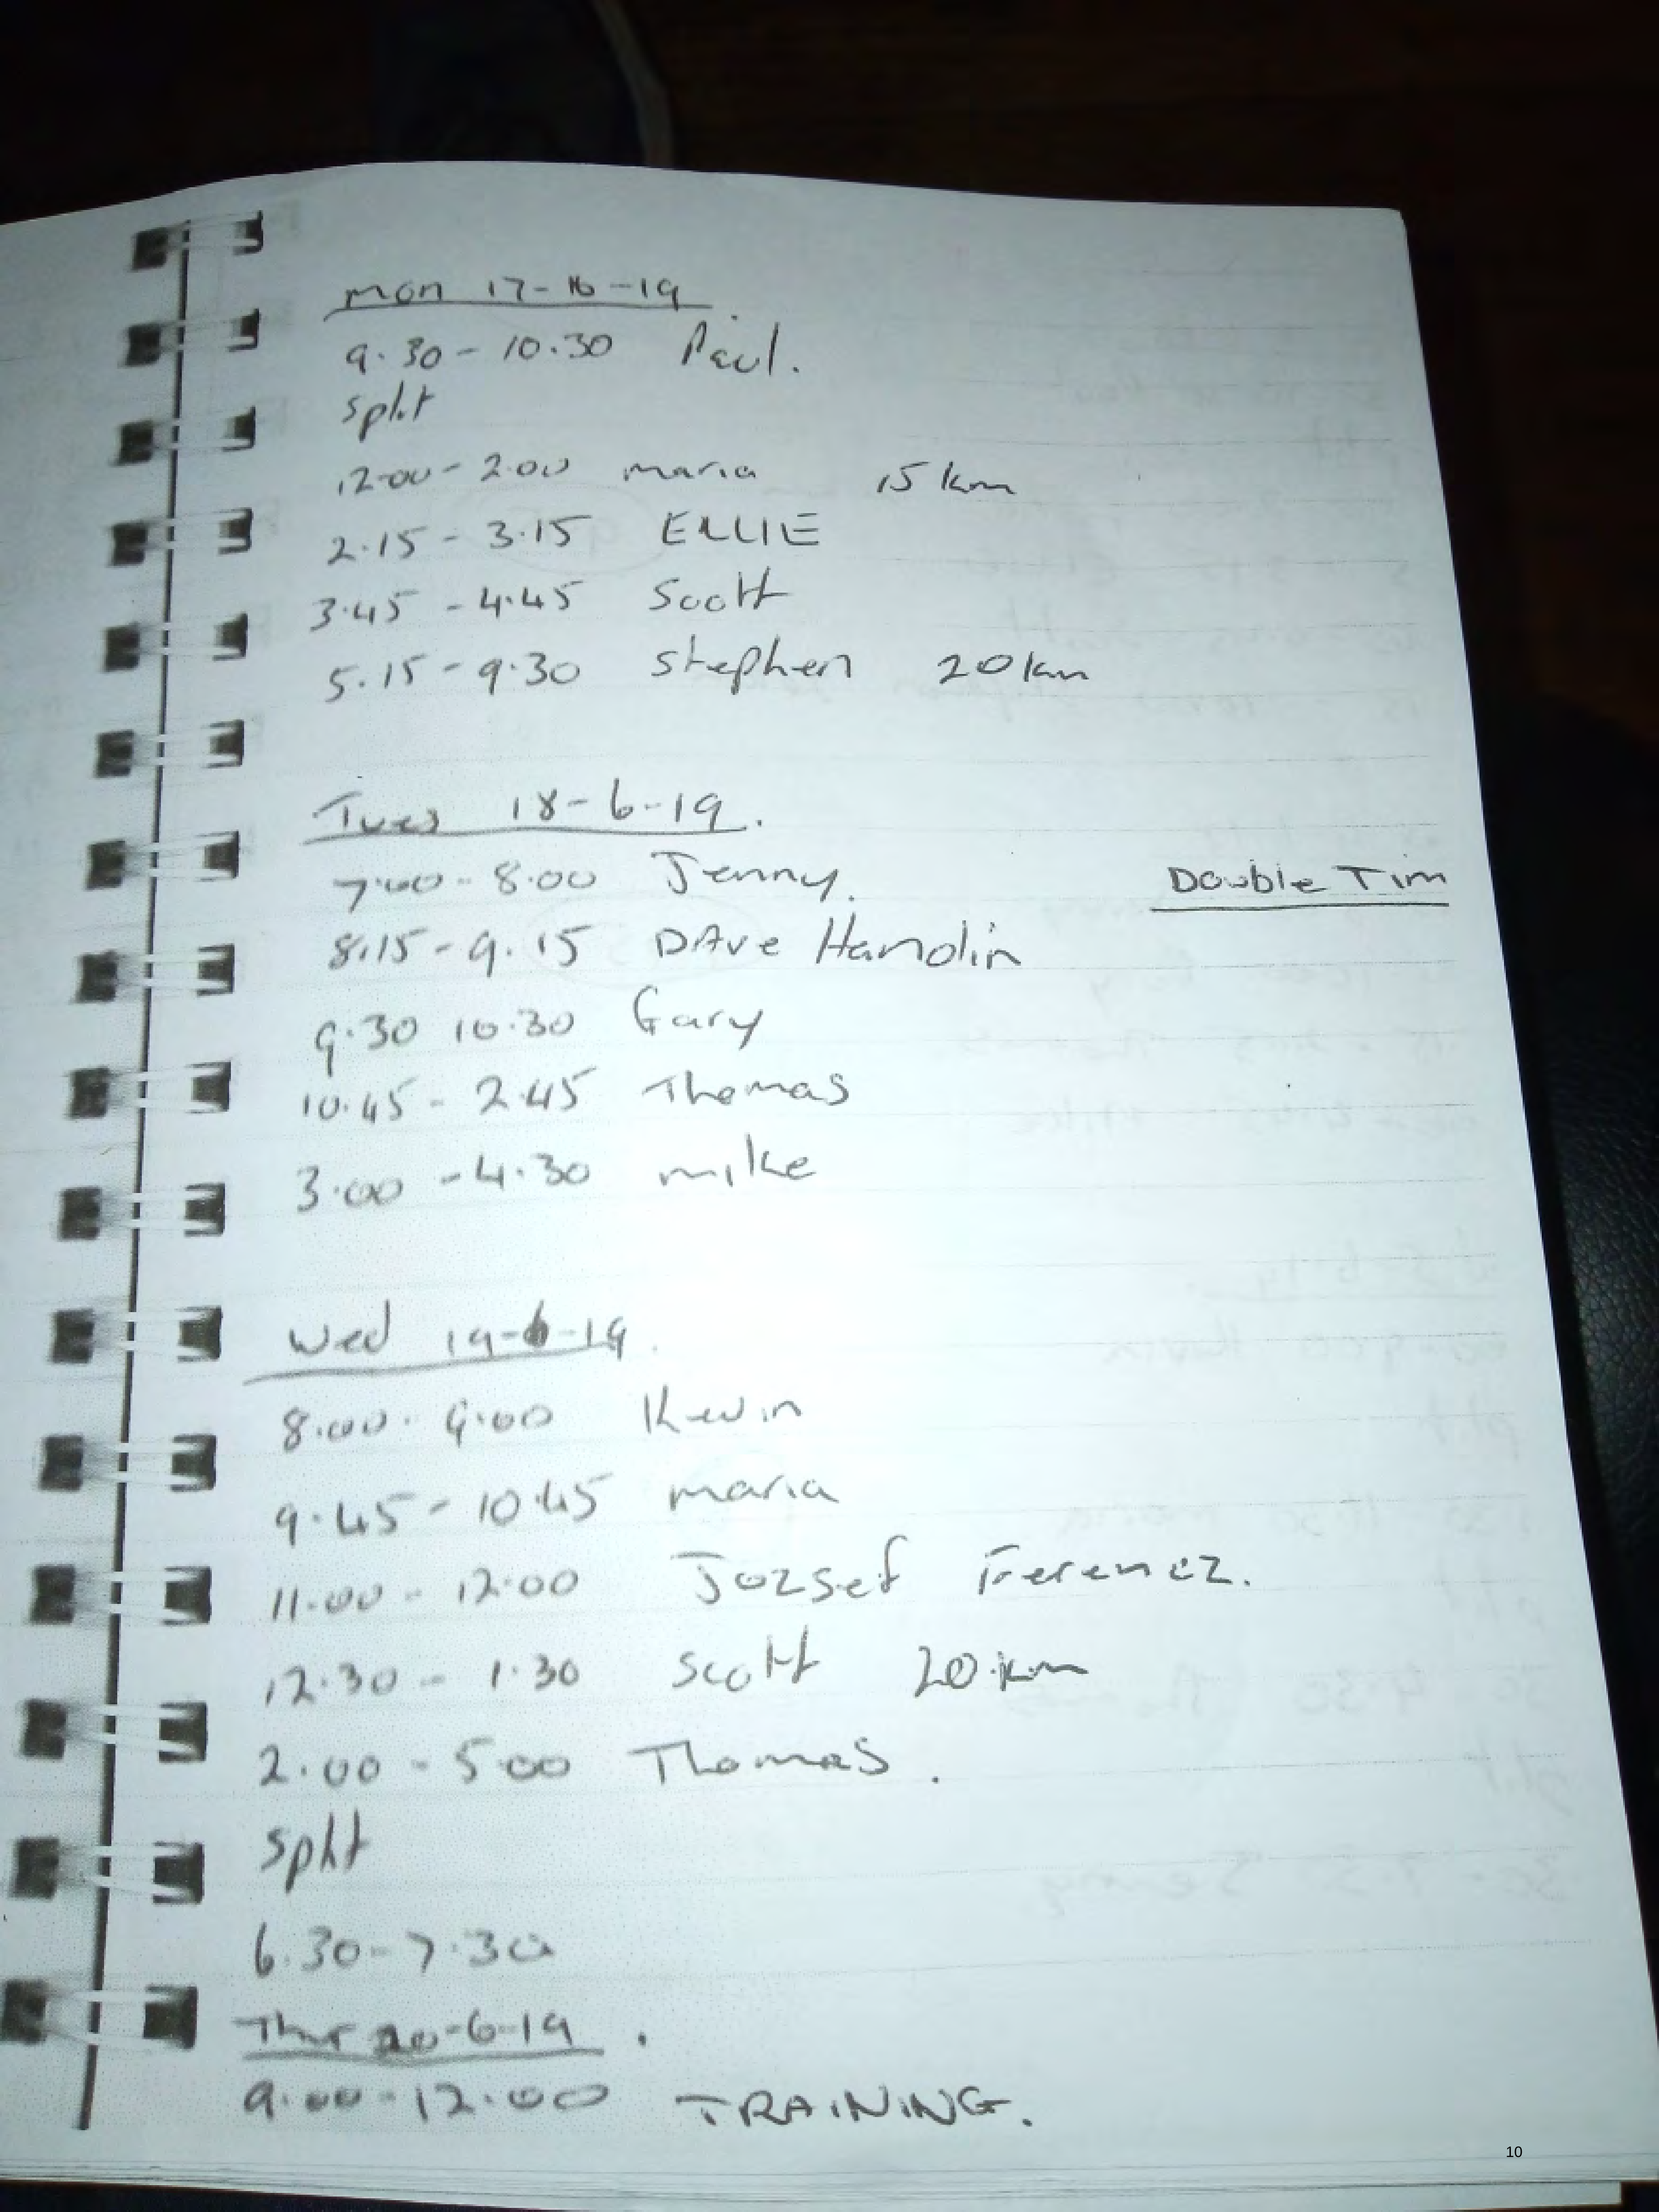 Mon 17-6-19
9.30 - 10.30 Paul.
split
12.00 - 2.00 maria 15 km
2.15 - 3.15 ELLIE
3.45 - 4.45 Scott
5.15 - 9.30 Stephen 20 km
Tues 18-6-19.
7.00 - 8.00 Jenny. Double Tim
8.15 - 9.15 DAve Hamolin
9.30 10.30 Gary
10.45 - 2.45 Thomas
3.00 - 4.30 mike
Wed 19-6-19.
8.00 - 9.00 Kevin
9.45 - 10.45 maria
11.00 - 12.00 Jozsef Ferencz.
12.30 - 1.30 Scott 20 km
2.00 - 5.00 Thomas.
split
6.30 - 7.30
Thur 20-6-19.
9.00 - 12.00 TRAINING.
10